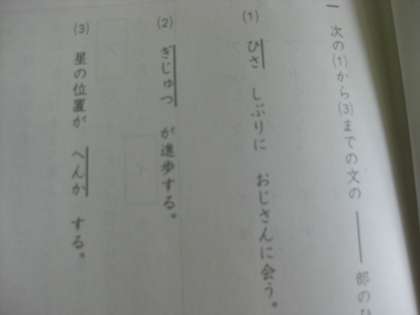 一 次の(1)から(3)までの文の――部のひ
(1) ひさしぶりに おじさんに会う。
(2) ぎじゅつ が進歩する。
(3) 星の位置が へんか する。